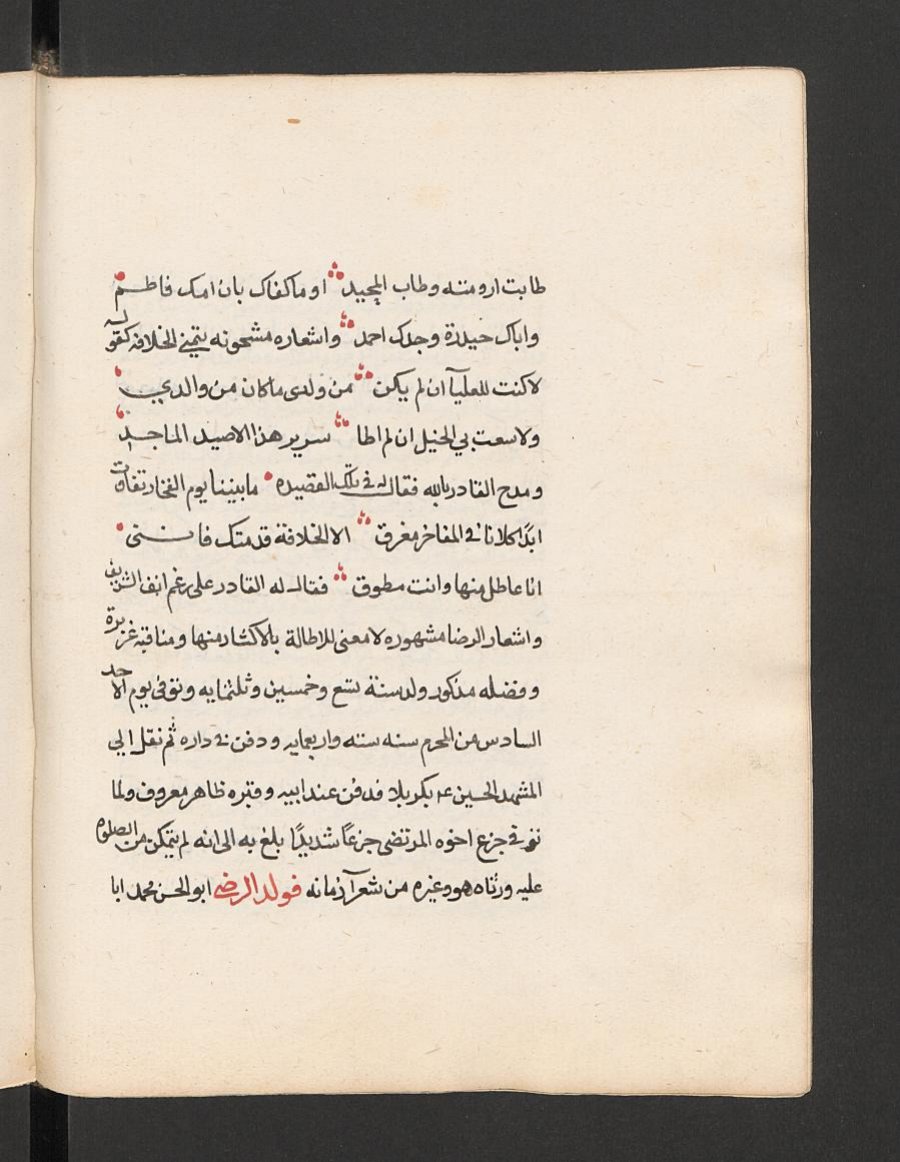 طابت ارومته وطاب المحيد او ما كفاك بان امك فاطم
واباك حيدرة وجدك احمد واشعاره مشحونه بتمني الخلافه كقوله
لا كنت للعليآ ان لم يكن من ولدى ماكان من والدي
ولا سعت بي الخيل ان لم اطا سرير هذا الاصيد الماجد
ومدح القادر بالله فقال له في تلك القصيده ما بيننا يوم الفخار تفاوت
ابدًا كلانا في المفاخر مغرق الا الخلافة قدمتك فانني
انا عاطل منها وانت مطوق فقال له القادر على رغم انف الشريف
واشعار الرضا مشهوره لا معنى للاطالة بالاكثار منها ومناقبه غزيرة
وفضله مذكور ولد سنة تسع وخمسين وثلثمايه وتوفي يوم الاحد
السادس من المحرم سنه سته واربعمايه ودفن في داره ثم نقل الي
المشهد الحسين عم بكربلا فدفن عند ابيه وقبره ظاهر معروف ولما
توفي جزع اخوه المرتضى جزعًا شديدًا بلغ به الى انه لم يتمكن من الصلوه
عليه ورثاه هو وغيره من شعرآ زمانه فولد الرضي ابو الحسن محمد ابا